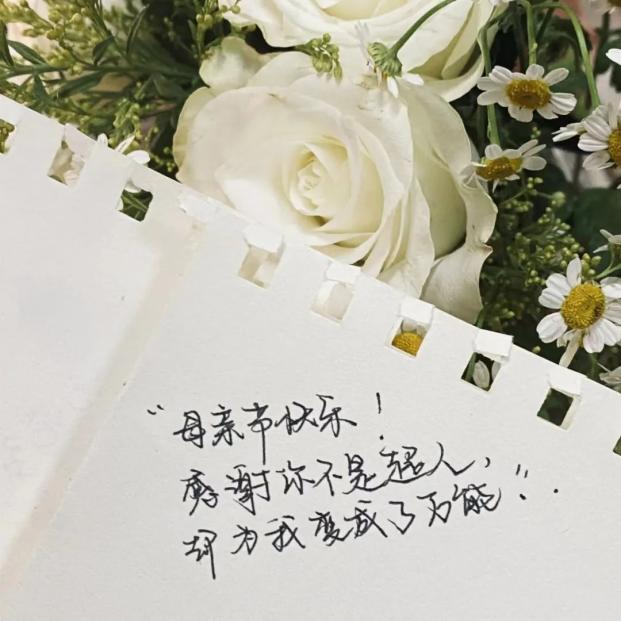 “母亲节快乐！
感谢你不是超人，
却为我变成了万能”.